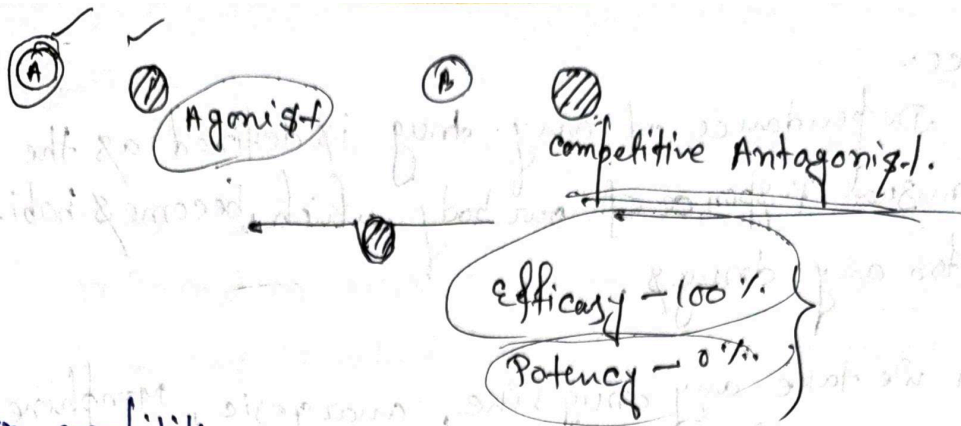 A
Agonist
B
competitive Antagonist.
Efficasy - 100 %.
Potency - 0 %.